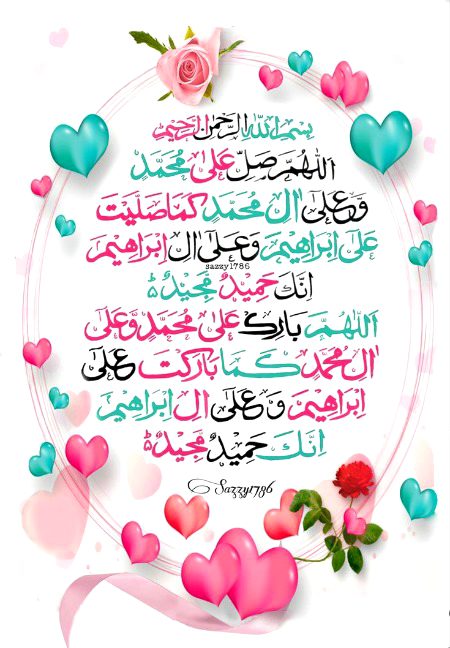 بِسْمِ اللهِ الرَّحْمٰنِ الرَّحِيْمِ
اَللّٰهُمَّ صَلِّ عَلٰى مُحَمَّدٍ
وَّعَلٰٓى اٰلِ مُحَمَّدٍ كَمَا صَلَّيْتَ
عَلٰٓى اِبْرَاهِيْمَ وَعَلٰٓى اٰلِ اِبْرَاهِيْمَ
sazzy1786
اِنَّكَ حَمِيْدٌ مَّجِيْدٌ
اَللّٰهُمَّ بَارِكْ عَلٰى مُحَمَّدٍ وَّعَلٰٓى
اٰلِ مُحَمَّدٍ كَمَا بَارَكْتَ عَلٰٓى
اِبْرَاهِيْمَ وَعَلٰٓى اٰلِ اِبْرَاهِيْمَ
اِنَّكَ حَمِيْدٌ مَّجِيْدٌ
Sazzy1786